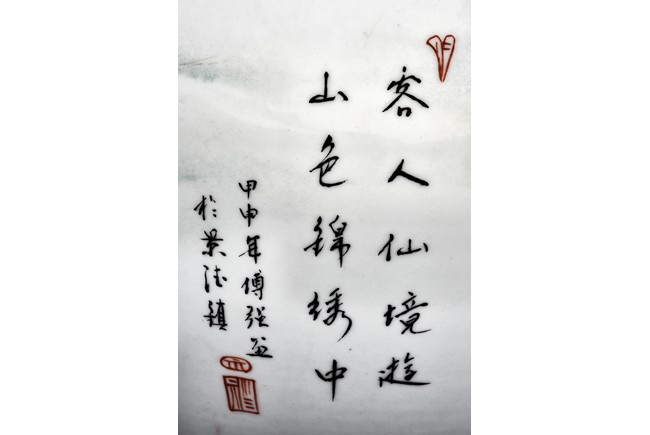 客人仙境遊
山色錦绣中
甲申年傅强画
於景德鎮